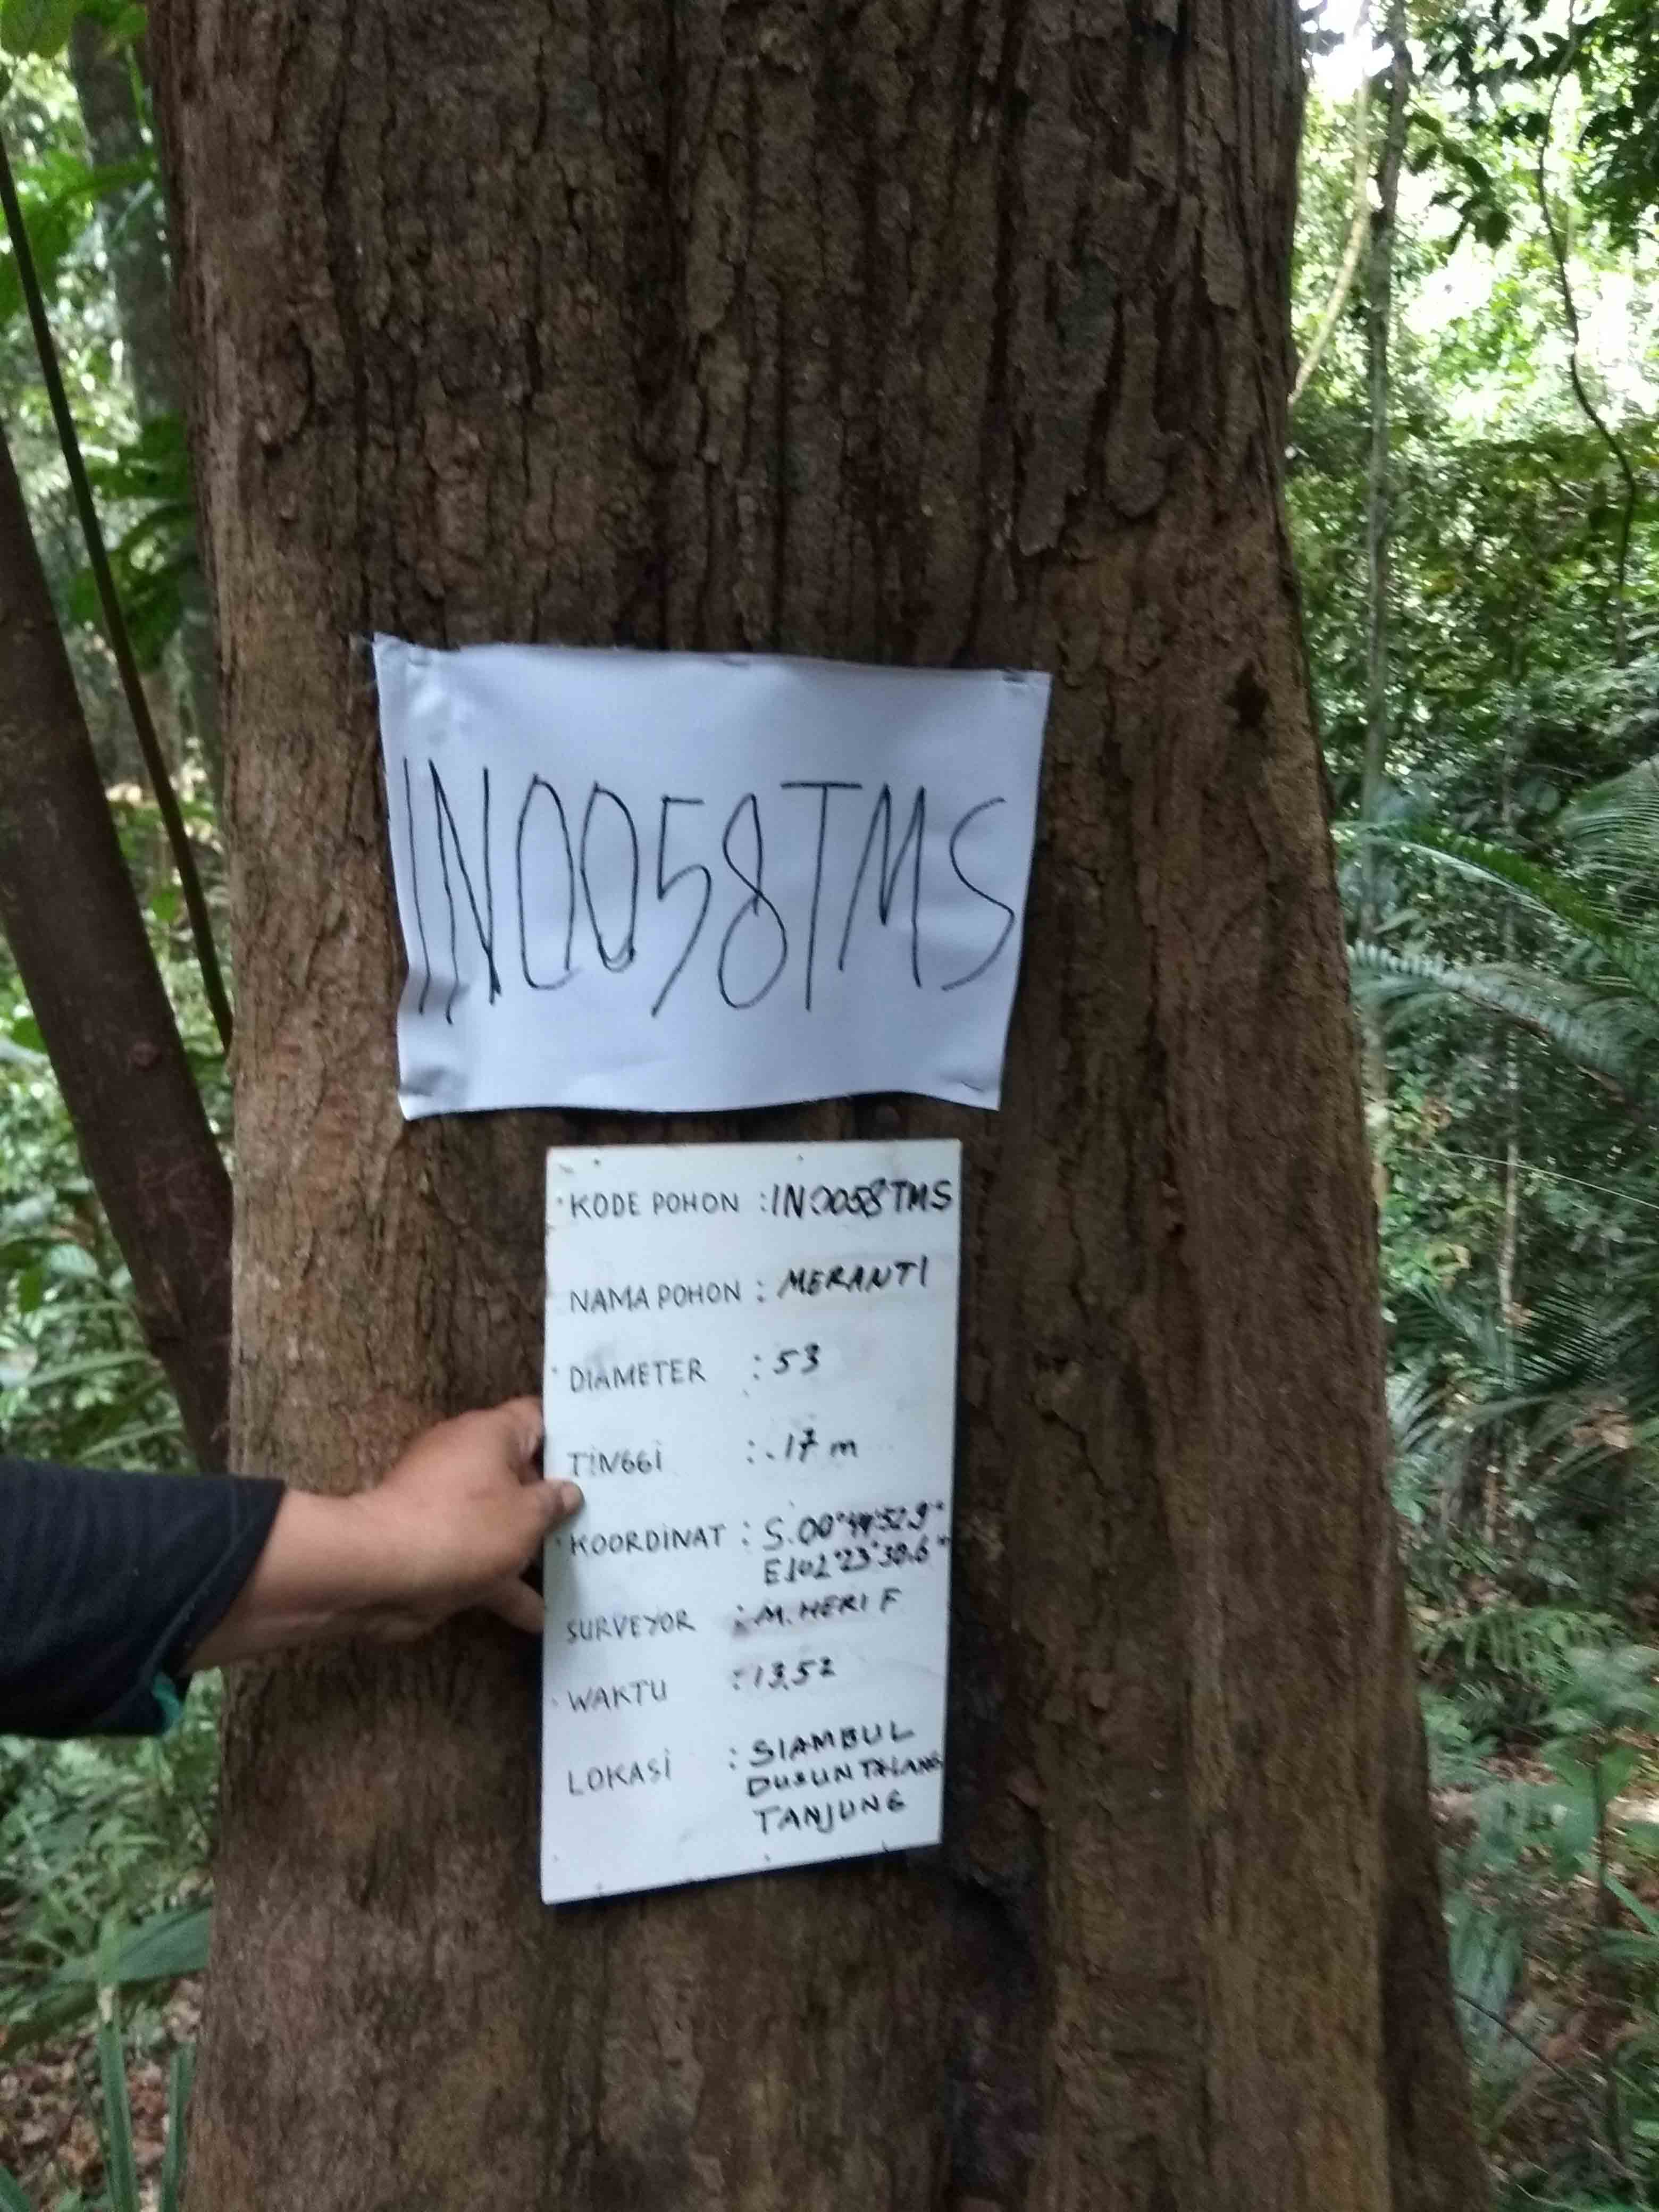 IN0058TMS
KODE POHON : IN0058TMS
NAMA POHON : MERANTI
DIAMETER : 53
TINGGI : 17 m
KOORDINAT : S.00°44'52.9"
E102°23'38.6"
SURVEYOR : M. HERI F
WAKTU : 13.52
LOKASI : SIAMBUL
DUSUN TALANG
TANJUNG